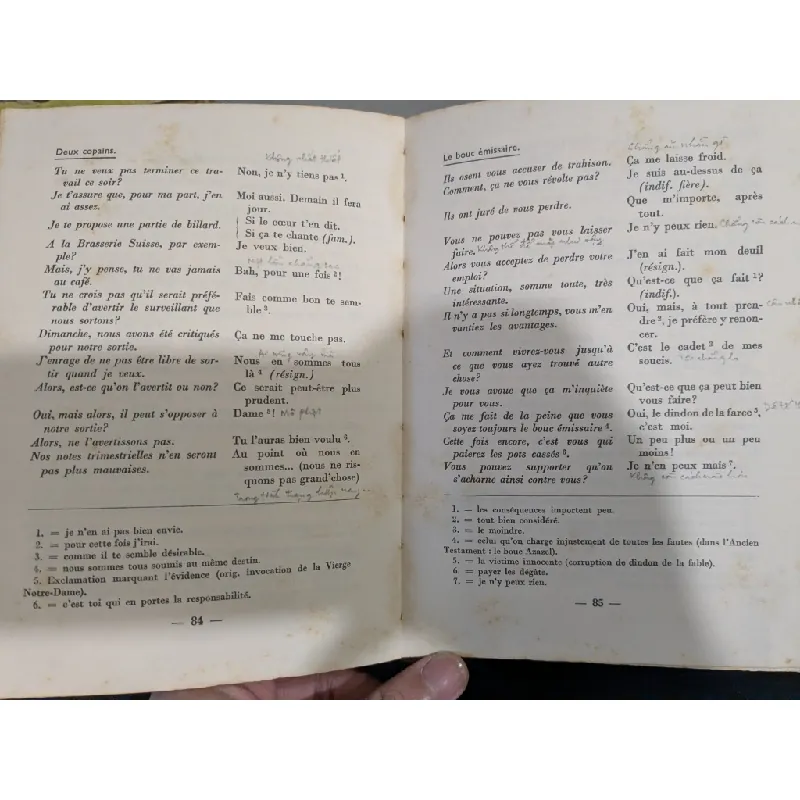 Deux copains.
Không nhất thiết
Tu ne veux pas terminer ce tra-
vail ce soir?
Non, je n'y tiens pas 1.
Je t'assure que, pour ma part, j'en
ai assez.
Moi aussi. Demain il fera
jour.
Je te propose une partie de billard.
Si le cœur t'en dit.
Si ça te chante (fam.).
A la Brasserie Suisse, par exem-
ple?
Je veux bien.
Mais, j'y pense, tu ne vas jamais
au café.
Bah, pour une fois 2!
Tu ne crois pas qu'il serait préfé-
rable d'avertir le surveillant que
nous sortons?
Fais comme bon te sem-
ble 3.
Dimanche, nous avons été critiqués
pour notre sortie.
Ça ne me touche pas.
J'enrage de ne pas être libre de sor-
tir quand je veux.
Nous en sommes tous
là 4 (résign.)
Alors, est-ce qu'on l'avertit ou non?
Ce serait peut-être plus
prudent.
Oui, mais alors, il peut s'opposer à
notre sortie?
Dame 5!
Alors, ne l'avertissons pas.
Tu l'auras bien voulu 6.
Nos notes trimestrielles n'en seront
pas plus mauvaises.
Au point où nous en
sommes... (nous ne ris-
quons pas grand'chose)
1. = je n'en ai pas bien envie.
2. = pour cette fois j'irai.
3. = comme il te semble désirable.
4. = nous sommes tous soumis au même destin.
5. Exclamation marquant l'évidence (orig. invocation de la Vierge
Notre-Dame).
6. = c'est toi qui en portes la responsabilité.
— 84 —
Le bouc émissaire.
Ils osent vous accuser de trahison.
Ça me laisse froid.
Comment, ça ne vous révolte pas?
Je suis au-dessus de ça
(indif. fière).
Ils ont juré de vous perdre.
Que m'importe, après
tout.
Vous ne pouvez pas vous laisser
faire.
Je n'y peux rien.
Alors vous acceptez de perdre votre
emploi?
J'en ai fait mon deuil
(résign.).
Une situation, somme toute, très
intéressante.
Qu'est-ce que ça fait 1?
(indif.).
Il n'y a pas si longtemps, vous m'en
vantiez les avantages.
Oui, mais, à tout pren-
dre 2, je préfère y renon-
cer.
Et comment vivrez-vous jusqu'à
ce que vous ayez trouvé autre
chose?
C'est le cadet 3 de mes
soucis.
Je vous avoue que ça m'inquiète
pour vous.
Qu'est-ce que ça peut bien
vous faire?
Ça me fait de la peine que vous
soyez toujours le bouc émissaire 4.
Oui, le dindon de la farce 5,
c'est moi.
Cette fois encore, c'est vous qui
paierez les pots cassés 6.
Un peu plus ou un peu
moins!
Vous pouvez supporter qu'on
s'acharne ainsi contre vous?
Je n'en peux mais 7.
1. = les conséquences importent peu.
2. = tout bien considéré.
3. = le moindre.
4. = celui qu'on charge injustement de toutes les fautes (dans l'Ancien
Testament : le bouc Azazel).
5. = la victime innocente (corruption de dindon de la fable).
6. = payer les dégâts.
7. = je n'y peux rien.
— 85 —